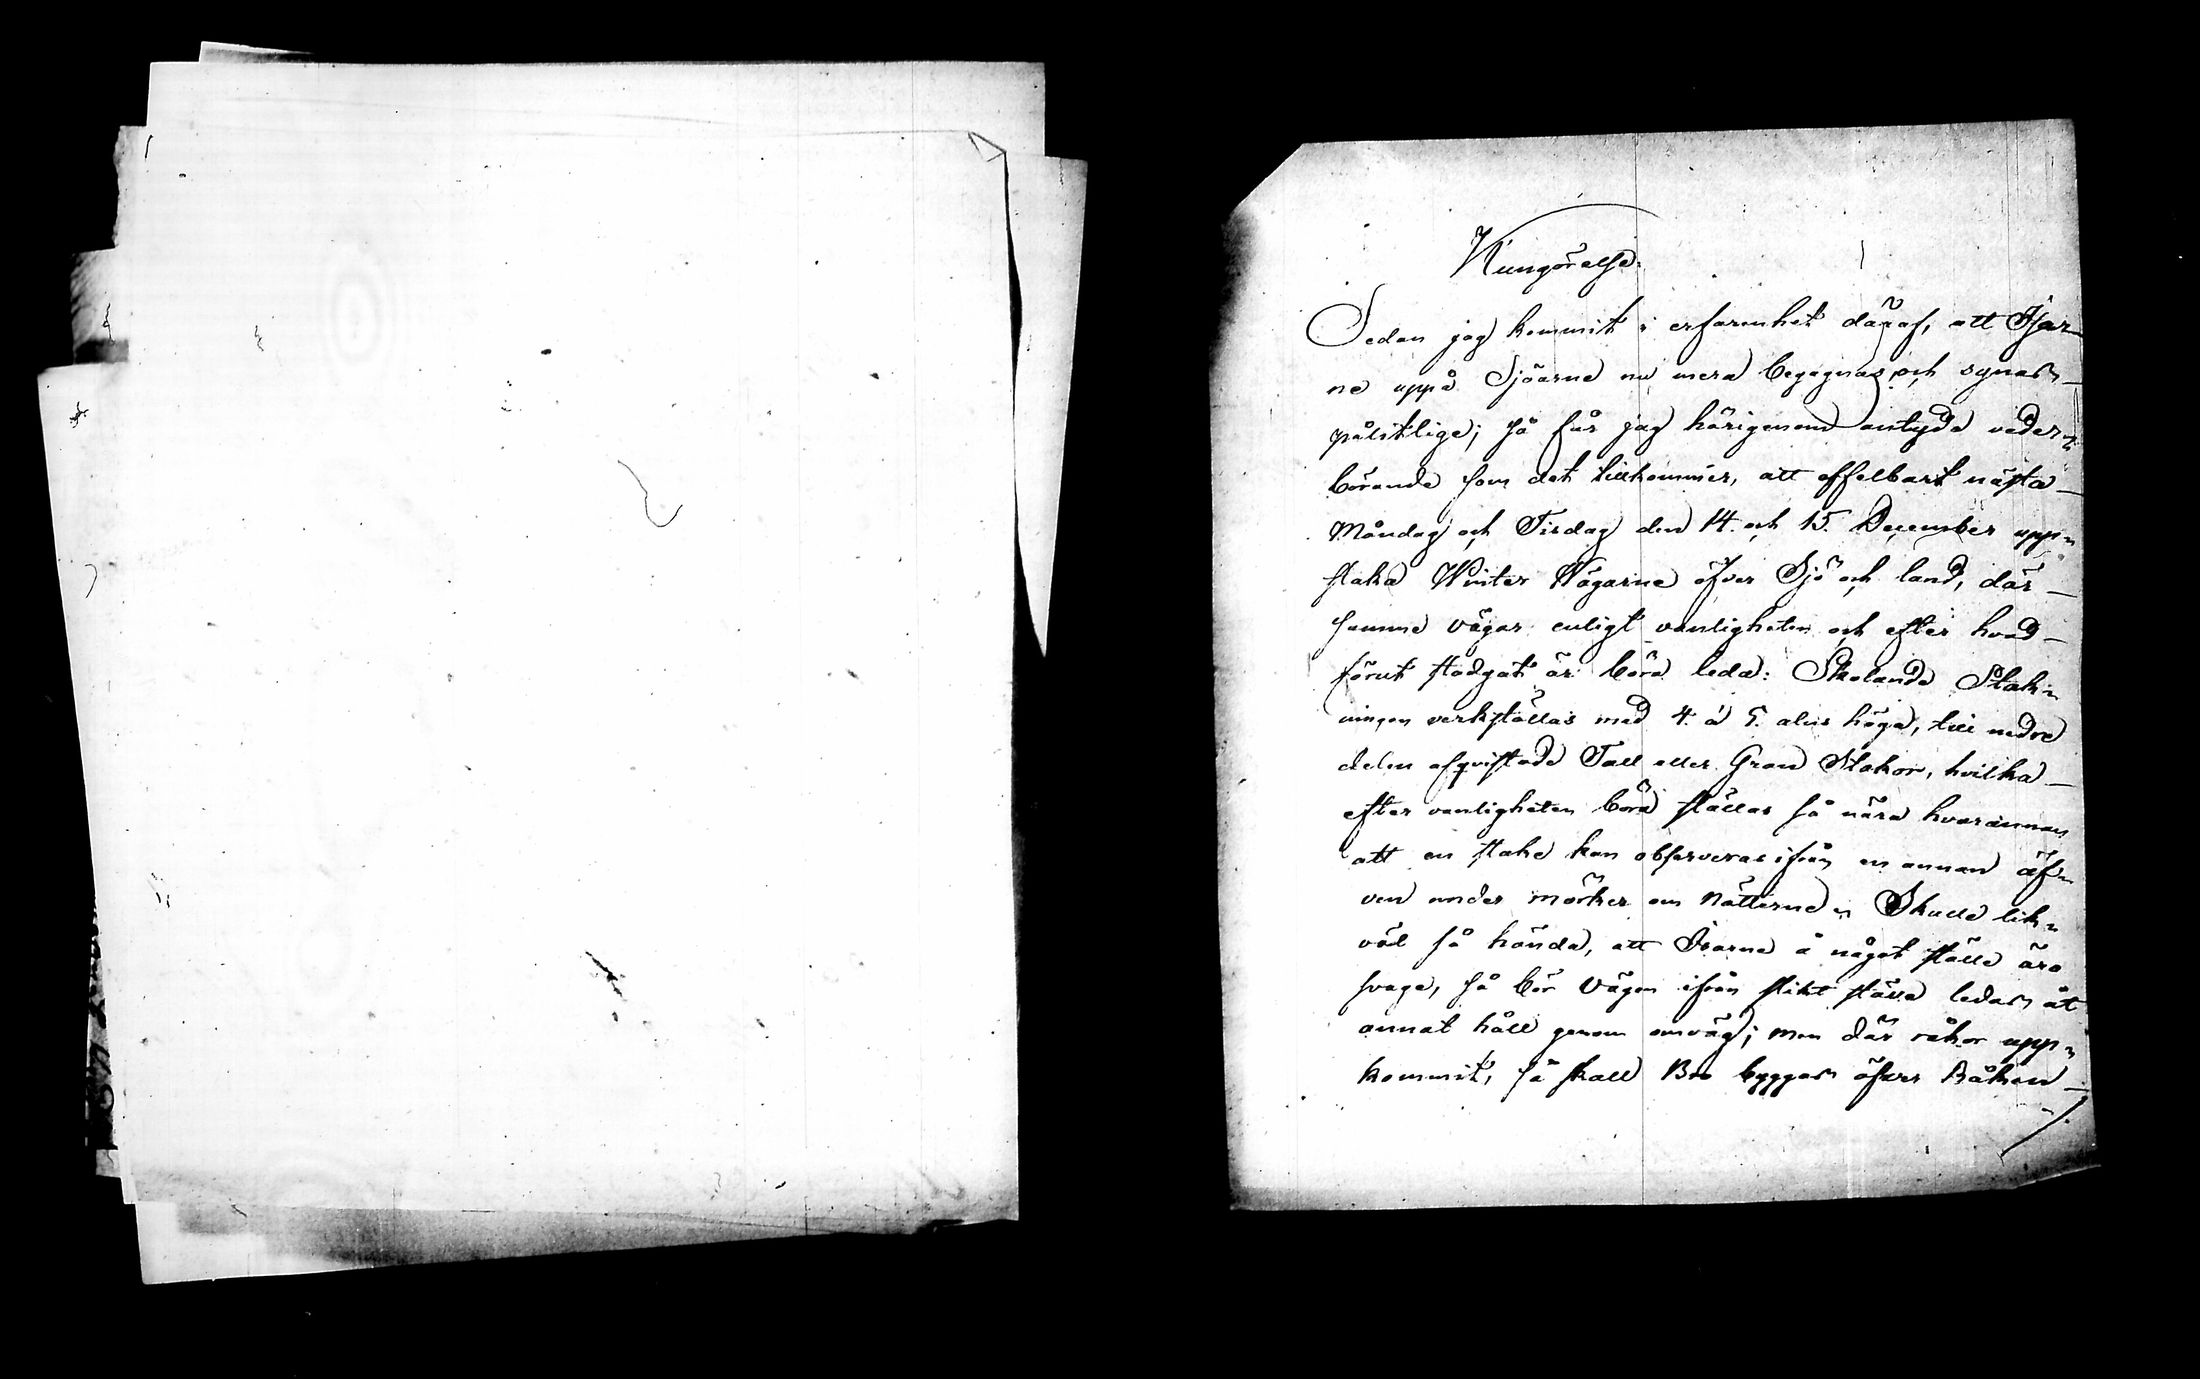 Kungörelse.
Sedan jag kommit i erfarenhet däraf, att Isar-
ne uppå Sjöarne nu mera begagnas och synas
pålitlige; så får jag härigenom antyda veder-
börande som det tillkommer, att offelbart nästa
Måndag och Tisdag den 14. och 15. December upp-
staka Winter Wägarne öfver Sjö och land, där
samme vägar enligt vanligheten och efter hvad
förut stadgat är böra leda: Skolande Stak-
ningen verkställas med 4. á 5. alns höga, till nedre
delen afqvistade Tall eller Gran Stakor, hvilka
efter vanligheten böra ställas så nära hvarannan
att en stake kan observeras ifrån en annan äf-
ven under mörker om Nätterne. Skulle lik-
väl så hända, att Isarne å något ställe äro
svaga, så bör Vägen ifrån slikt ställe ledas åt
annat håll genom omväg; men där råkor upp-
kommit, så skall Bro byggas öfver Råken